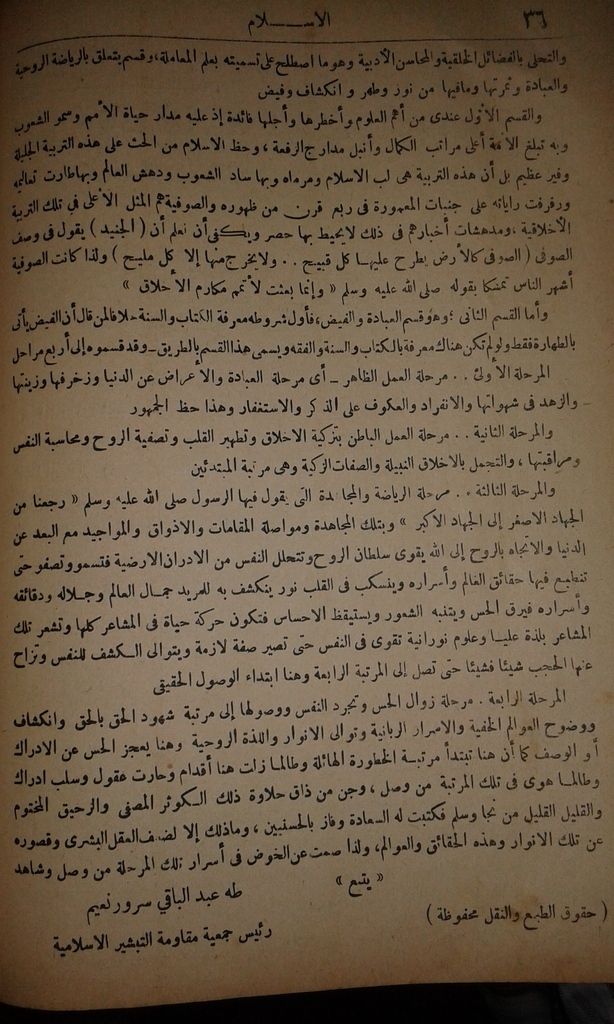 ٣٦
الاســـلام
والتحلى بالفضائل الخلقية والمحاسن الأدبية وهو ما اصطلح على تسميته بعلم المعاملة، وقسم يتعلق بالرياضة الروحية
والعبادة وثمرتها ومافيها من نور وطهر وانكشاف وفيض
والقسم الأول عندى من أهم العلوم وأخطرها وأجلها فائدة إذ عليه مدار حياة الأمم وسمو الشعوب
وبه تبلغ الأمة أعلى مراتب الكمال وأنبل مدارج الرفعة، وحظ الاسلام من الحث على هذه التربية الجليلة
وفير عظيم بل أن هذه التربية هى لب الاسلام ومرماه وبها ساد الشعوب ودهش العالم وبها طارت تعاليمه
ورفرفت راياته على جنبات المعمورة فى ربع قرن من ظهوره والصوفية هم المثل الأعلى فى تلك التربية
الأخلاقية، ومدهشات أخبارهم فى ذلك لا يحيط بها حصر ويكفى أن نعلم أن ( الجنيد ) يقول فى وصف
الصوفى ( الصوفى كالأرض يطرح عليها كل قبيح . . ولا يخرج منها إلا كل مليح ) ولذا كانت الصوفية
أشهر الناس تمسكا بقوله صلى الله عليه وسلم « وإنما بعثت لأتمم مكارم الأخلاق »
وأما القسم الثانى ؛ وهو قسم العبادة والفيض، فأول شروطه معرفة الكتاب والسنة خلافا لمن قال أن الفيض يأتى
بالطهارة فقط ولو لم تكن هناك معرفة بالكتاب والسنة والفقه ويسمى هذا القسم بالطريق – وقد قسموه إلى أربع مراحل
المرحلة الأولى . . مرحلة العمل الظاهر – أى مرحلة العبادة والاعراض عن الدنيا وزخرفها وزينتها
– والزهد فى شهواتها والانفراد والعكوف على الذكر والاستغفار وهذا حظ الجمهور
والمرحلة الثانية . . مرحلة العمل الباطن بتزكية الاخلاق وتطهير القلب وتصفية الروح ومحاسبة النفس
ومراقبتها، والتجمل بالاخلاق النبيلة والصفات الزكية وهى مرتبة المبتدئين
والمرحلة الثالثة . . مرحلة الرياضة والمجاهدة التى يقول فيها الرسول صلى الله عليه وسلم « رجعنا من
الجهاد الاصغر إلى الجهاد الأكبر » وبتلك المجاهدة ومواصلة المقامات والاذواق والمواجيد مع البعد عن
الدنيا والاتجاه بالروح إلى الله يقوى سلطان الروح وتتحلل النفس من الادران الارضية فتسمو وتصفو حتى
تنطبع فيها حقائق العالم وأسراره وينسكب فى القلب نور ينكشف به للمريد جمـال العالم وجـلاله ودقائقه
وأسراره فيرق الحس ويتنبه الشعور ويستيقظ الاحساس فتكون حركة حياة فى المشاعر كلها وتشعر تلك
المشاعر بلذة عليـا وعلوم نورانية تقوى فى النفس حتى تصير صفة لازمة ويتوالى الـكشف للنفس وتزاح
عنها الحجب شيئا فشيئا حتى تصل إلى المرتبة الرابعة وهنا ابتداء الوصول الحقيقى
المرحلة الرابعة . مرحلة زوال الحس وتجرد النفس ووصولها إلى مرتبة شهود الحق بالحق وانكشاف
ووضوح العوالم الخفية والاسرار الربانية وتوالى الانوار واللذة الروحية وهنا يعجز الحس عن الادراك
أو الوصف كما أن هنا تبتدأ مرتبـة الخطورة الهائلة وطالمـا زلت هنا أقدام وحارت عقول وسلب ادراك
وطالمـا هوى فى تلك المرتبة من وصل، وجن من ذاق حلاوة ذلك الـكوثر المصفى والرحيق المختوم
والقليل القليل من نجا وسلم فكتبت له السعادة وفاز بالحسنيين، وماذلك إلا لضعف العقل البشرى وقصوره
عن تلك الانوار وهذه الحقائق والعوالم، ولذا صمت عن الخوض فى أسرار تلك المرحلة من وصل وشاهد
« يتبع »
طه عبد الباقي سرور نعيم
( حقوق الطبع والنقل محفوظة )
رئيس جمعية مقاومة التبشير الاسلامية